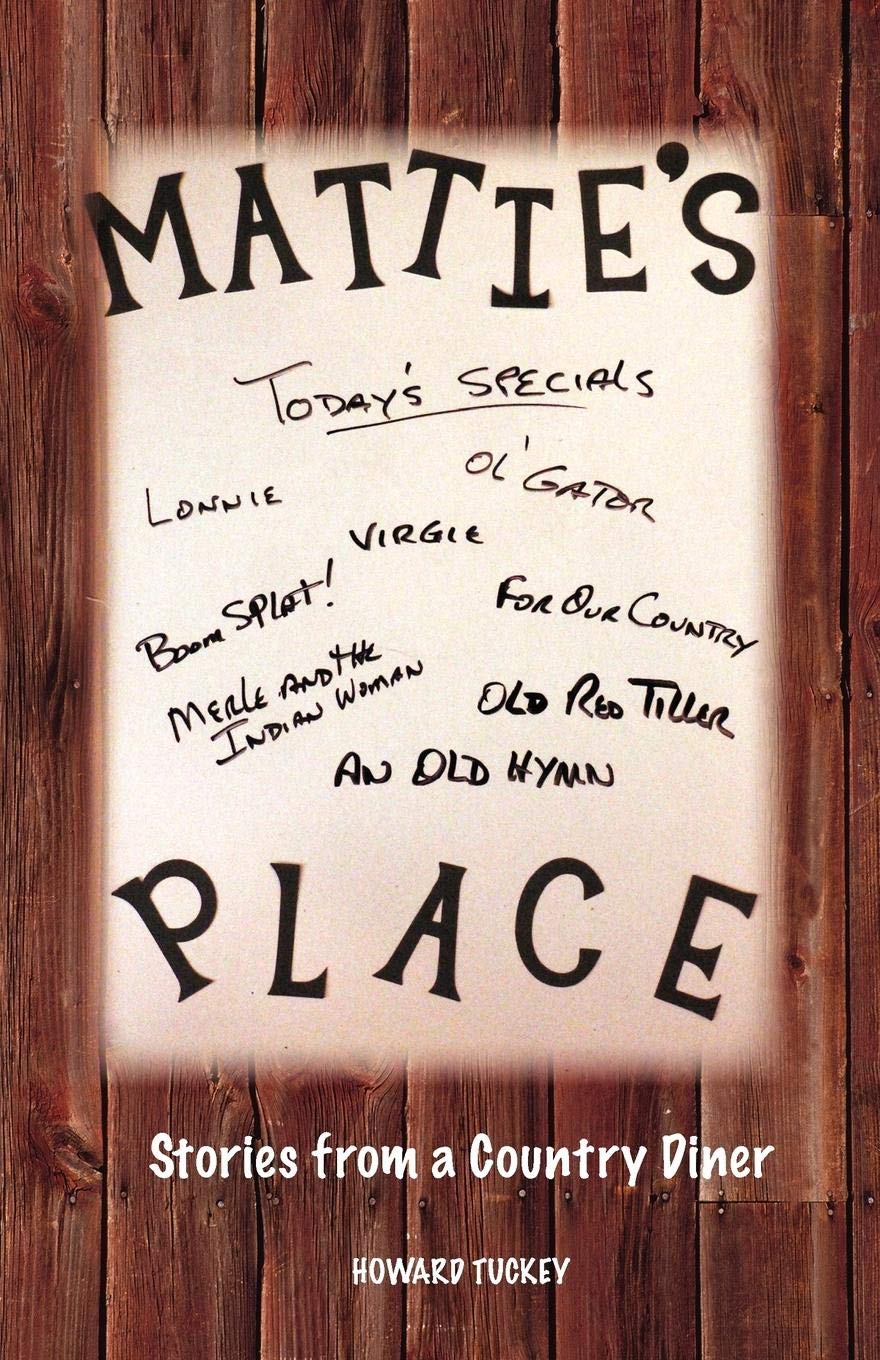 MATTIE'S
TODAY'S SPECIALS
OL' GATOR
LONNIE
VIRGIE
BOOM SPLAT!
FOR OUR COUNTRY
MERLE AND THE
INDIAN WOMAN
OLD RED TILLER
AN OLD HYMN
PLACE
Stories from a Country Diner
HOWARD TUCKEY